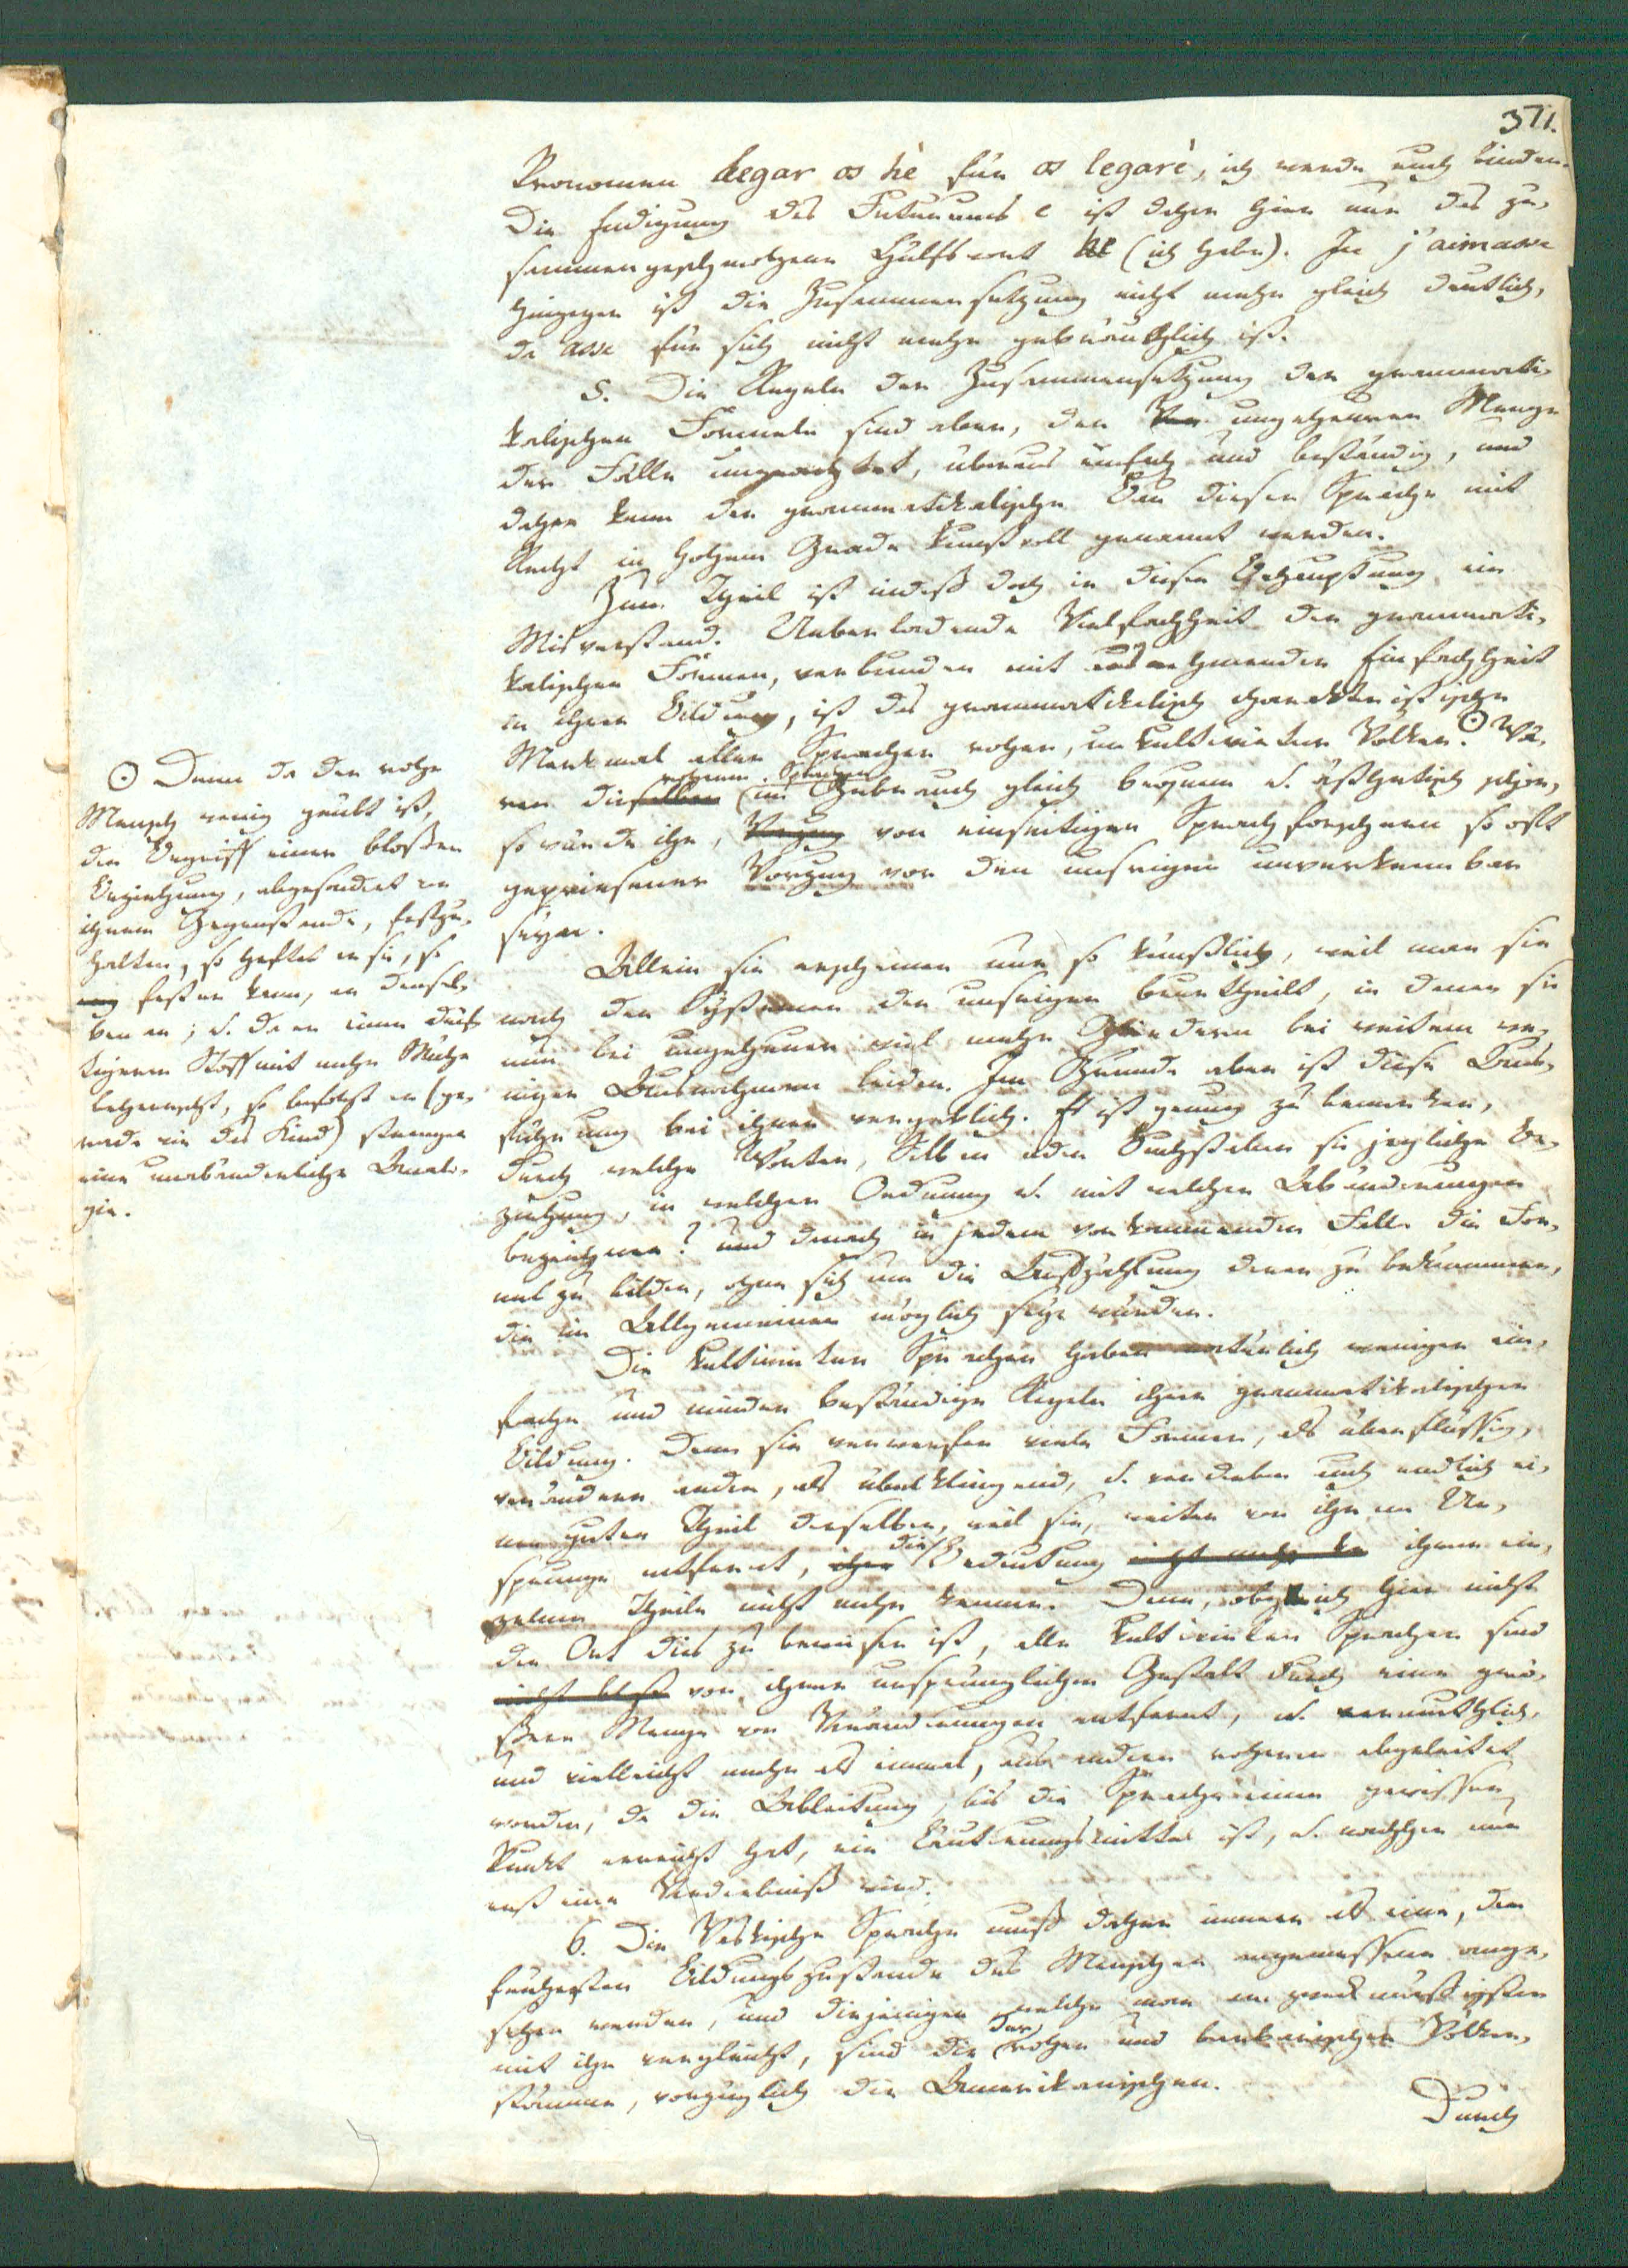 371.
Pronomen legar os hè für os legarè, ich werde euch binden.
Die Endigung des Futurums e ist daher hier nur das zu-
sammengeschmolzene Hülfswort he (ich habe). In j'aimasse
hingegen ist die Zusammensetzung nicht mehr gleich deutlich,
da asse für sich nicht mehr gebräuchlich ist.
5. Die Regeln der Zusammensetzung der grammati-
kalischen Formeln sind aber, der ungeheuren Menge
der Fälle ungeachtet, überaus einfach und beständig, und
daher kann der grammatikalische Bau dieser Sprache mit
Recht in hohem Grade kunstvoll genannt werden.
Zum Theil ist indeß doch in dieser Behauptung ein
Misverstand. Ueberladende Vielfachheit der grammati-
kalischen Formen, verbunden mit ausnehmender Einfachheit
in ihrer Bildung, ist das grammatikalisch charakteristische
Merkmal aller Sprachen roher, unkultivirter Völker. ⊙ Wä-
ren dieselben im Gebrauch gleich bequem u. ästhetisch schön,
so würde ihr, Vorzug von einseitigen Sprachforschern so oft
gepriesener Vorzug vor den unsrigen unverkennbar
seyn.
Allein sie erscheinen nur so künstlich, weil man sie
nach den Systemen der unsrigen beurtheilt, in denen sie
nun bei ungeheuer viel mehr Gliedern bei weitem we-
niger Ausnahmen leiden. Im Grunde aber ist diese Aus-
führung bei ihnen vergeblich. Es ist genug zu bemerken,
durch welche Wörter, Silben oder Buchstaben sie jegliche Be-
ziehung, in welcher Ordnung u. mit welchen Abänderungen
bezeichnen? und danach in jedem vorkommenden Falle die For-
mel zu bilden, ohne sich um die Aufzählung derer zu bekümmern,
die im Allgemeinen möglich seyn würden.
Die kultivirten Sprachen haben natürlich weniger ein-
fache und minder beständige Regeln ihrer grammatikalischen
Bildung. Denn sie verwerfen viele Formen, als überflüssig,
verändern andre, als übelklingend, u. verderben auch endlich ei-
nen guten Theil derselben, weil sie, weiter von ihrem Ur-
sprunge entfernt, die Bedeutung ihrer ein-
zelnen Theile nicht mehr kennen. Denn, obgleich hier nicht
der Ort dies zu beweisen ist, alle kultivirten Sprachen sind
nicht bloß von ihrer ursprünglichen Gestalt durch eine grö-
ßere Menge von Veränderungen entfernt, u. vermuthlich,
und vielleicht mehr als einmal, aus andren roheren abgeleitet
worden, da die Ableitung, bis die Sprache einen gewissen
Punkt erreicht hat, ein Läuterungsmittel ist, u. nachher nur
erst eine Verderbniß wird.
6. Die Vaskische Sprache muß daher immer als eine, dem
früheren Bildungszustande des Menschen angemessene ange-
sehen werden, und diejenigen welche man am zweckmäßigsten
mit ihr vergleicht, sind die der rohen und barbarischen Völker-
stämme, vorzüglich die Amerikanischen.
Durch
⊙ Denn da der rohe
Mensch wenig geübt ist,
den Begriff einer bloßen
Beziehung, abgesondert von
ihrem Gegenstande, festzu-
halten, so heftet er sie, so
fest er kann, an densel-
ben an; u. da er einen dürf-
tigeren Stoff mit mehr Mühe
beherrscht, so befolgt er (ge-
rade wie das Kind) strenger
eine unabänderliche Analo-
gie.